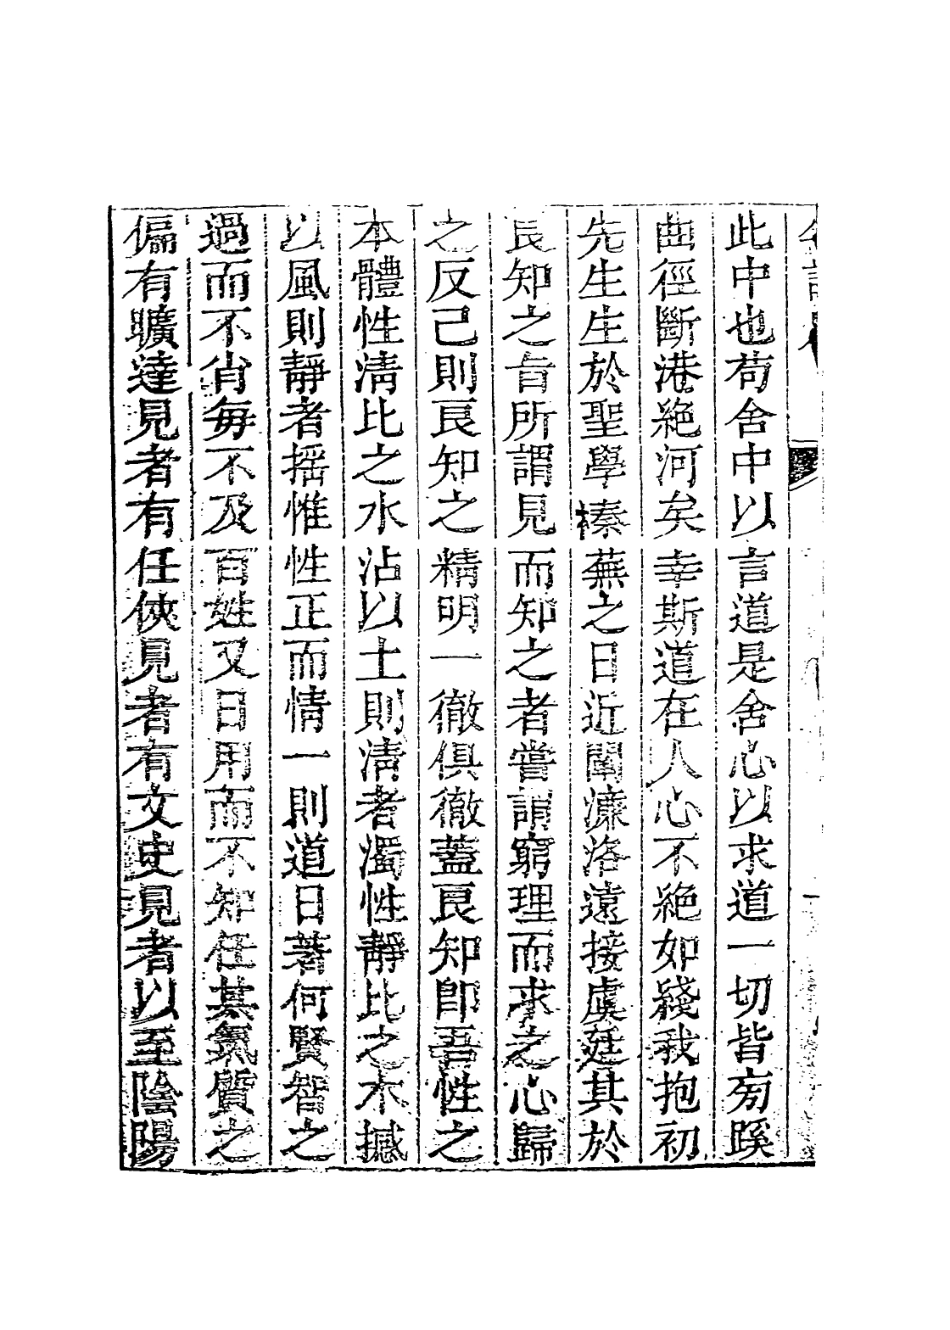 此中也苟舍中以言道是舍心以求道一切皆旁蹊
曲徑斷港絕河矣幸斯道在人心不絕如綫我抱初
先生生於聖學榛蕪之日近闡濂洛遠接虞廷其於
良知之旨所謂見而知之者嘗謂窮理而求之心歸
之反己則良知之精明一徹俱徹蓋良知卽吾性之
本體性淸比之水沾以土則淸者濁性靜比之木撼
以風則靜者揺惟性正而情一則道日著何賢智之
過而不肖每不及百姓又日用而不知任其氣質之
偏有曠達見者有任俠見者有文史見者以至陰陽